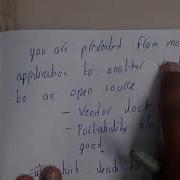 you are prevented from mo
application to another
to an open source
- Vendor lock
- Portability
good
which leads